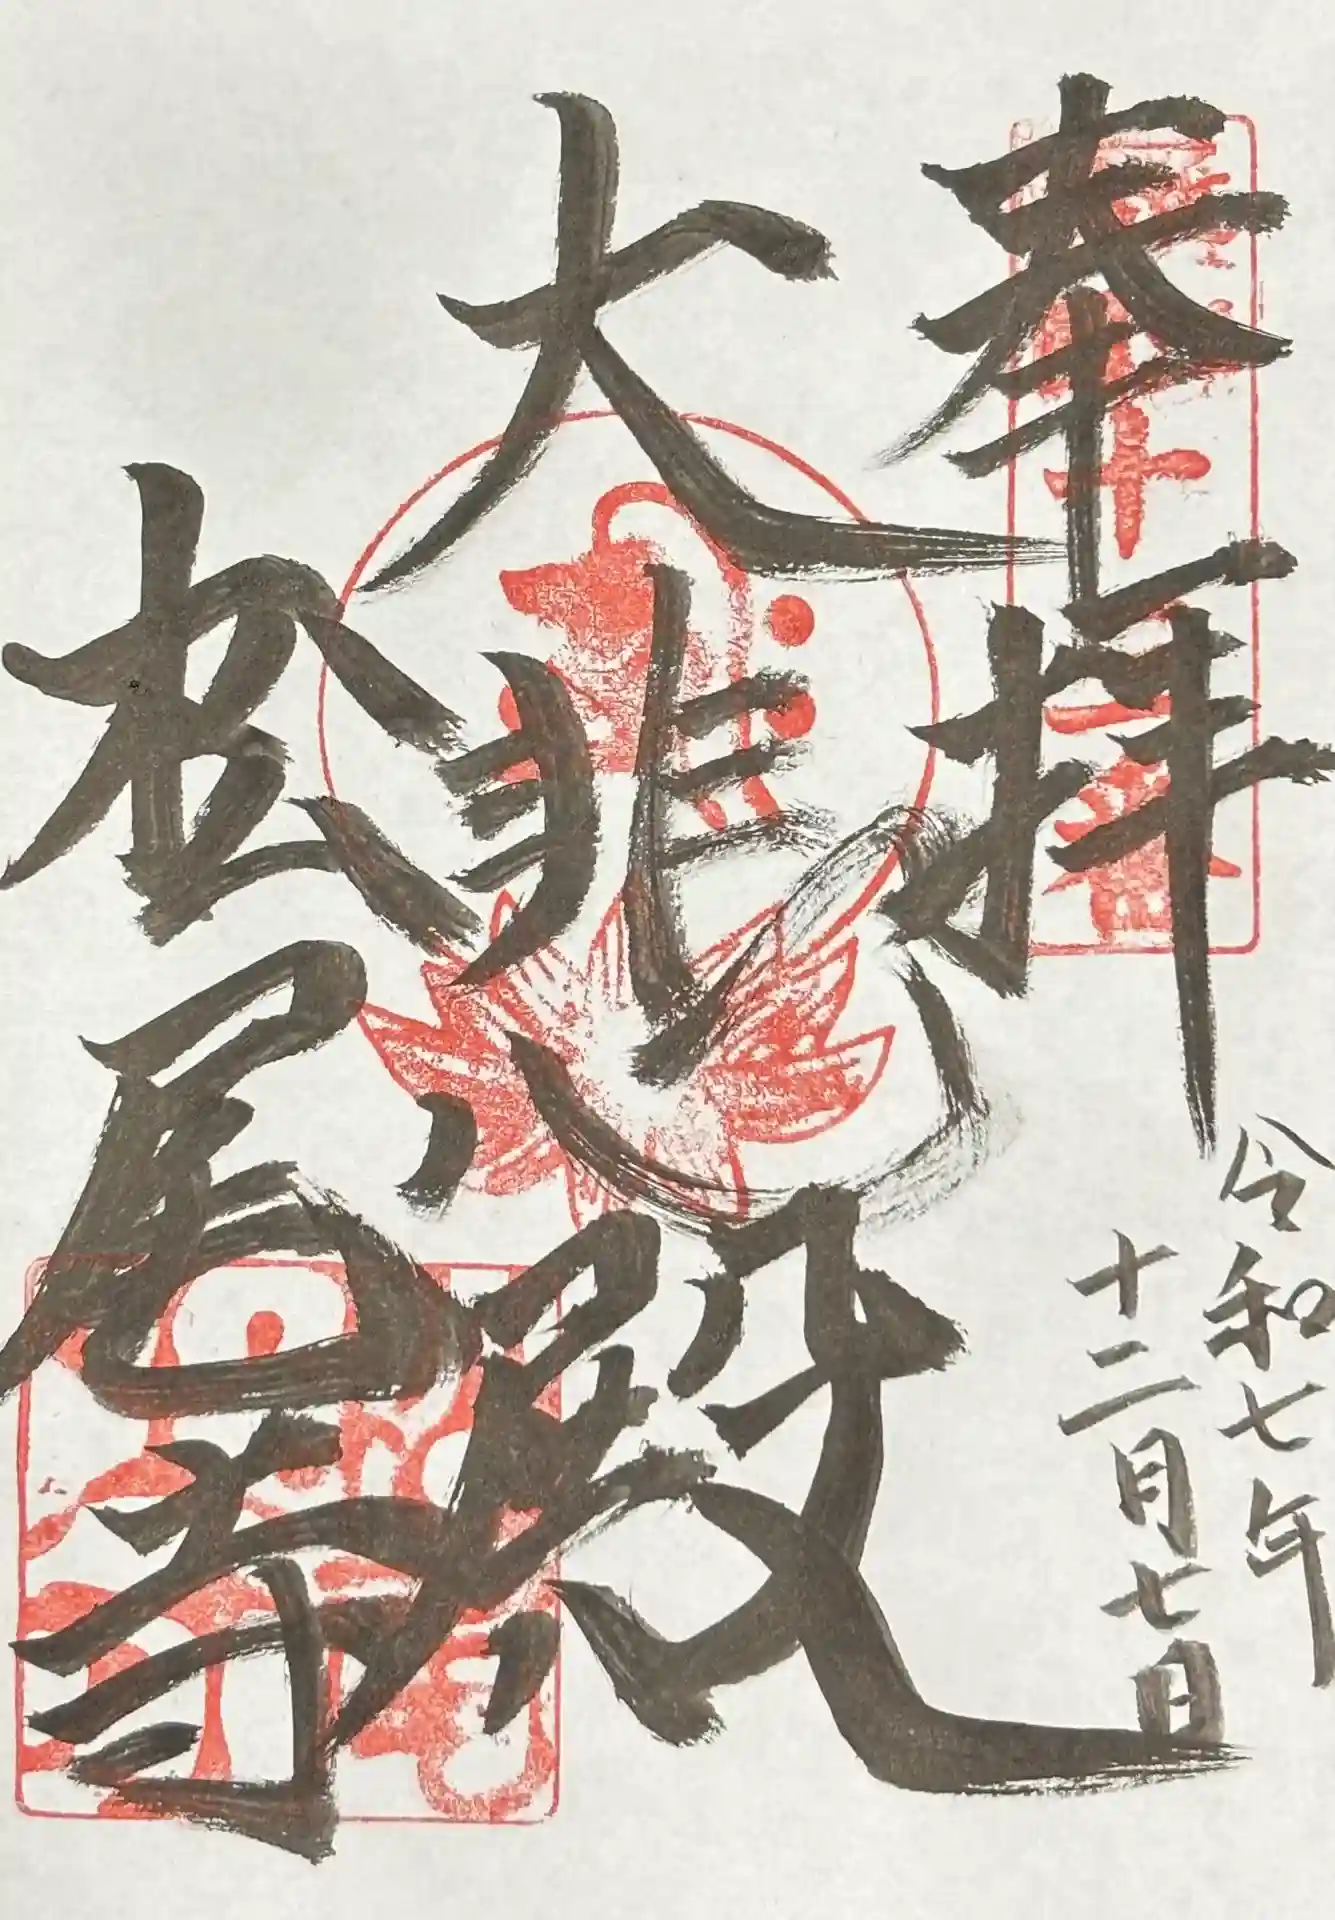 奉拝
令和七年
十二月七日
大悲殿
松尾寺